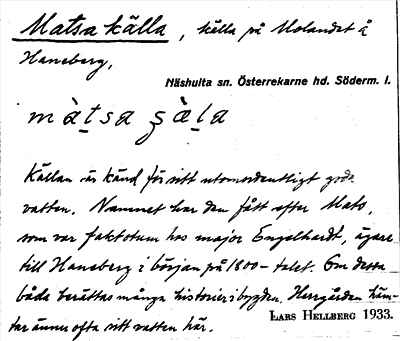 Matsa källa, källa på Molandet å
Haneberg,
Näshulta sn. Österrekarne hd. Söderm. l.
màtsa ʂàla
Källan är känd för sitt utomordentligt goda
vatten. Namnet har den fått efter Mats,
som var faktotum hos major Engelhardt, ägare
till Haneberg i början på 1800-talet. Om dessa
båda berättas många historier i bygden. Herrgården häm-
tar ännu ofta sitt vatten här.
LARS HELLBERG 1933.